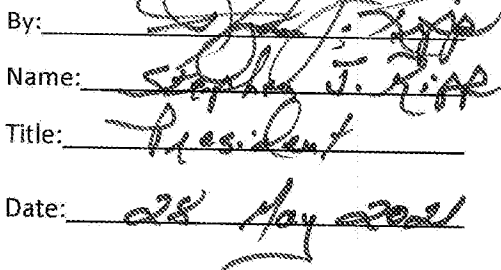 By:
Name: Stephen J. Zipp
Title: President
Date: 25 May 2021